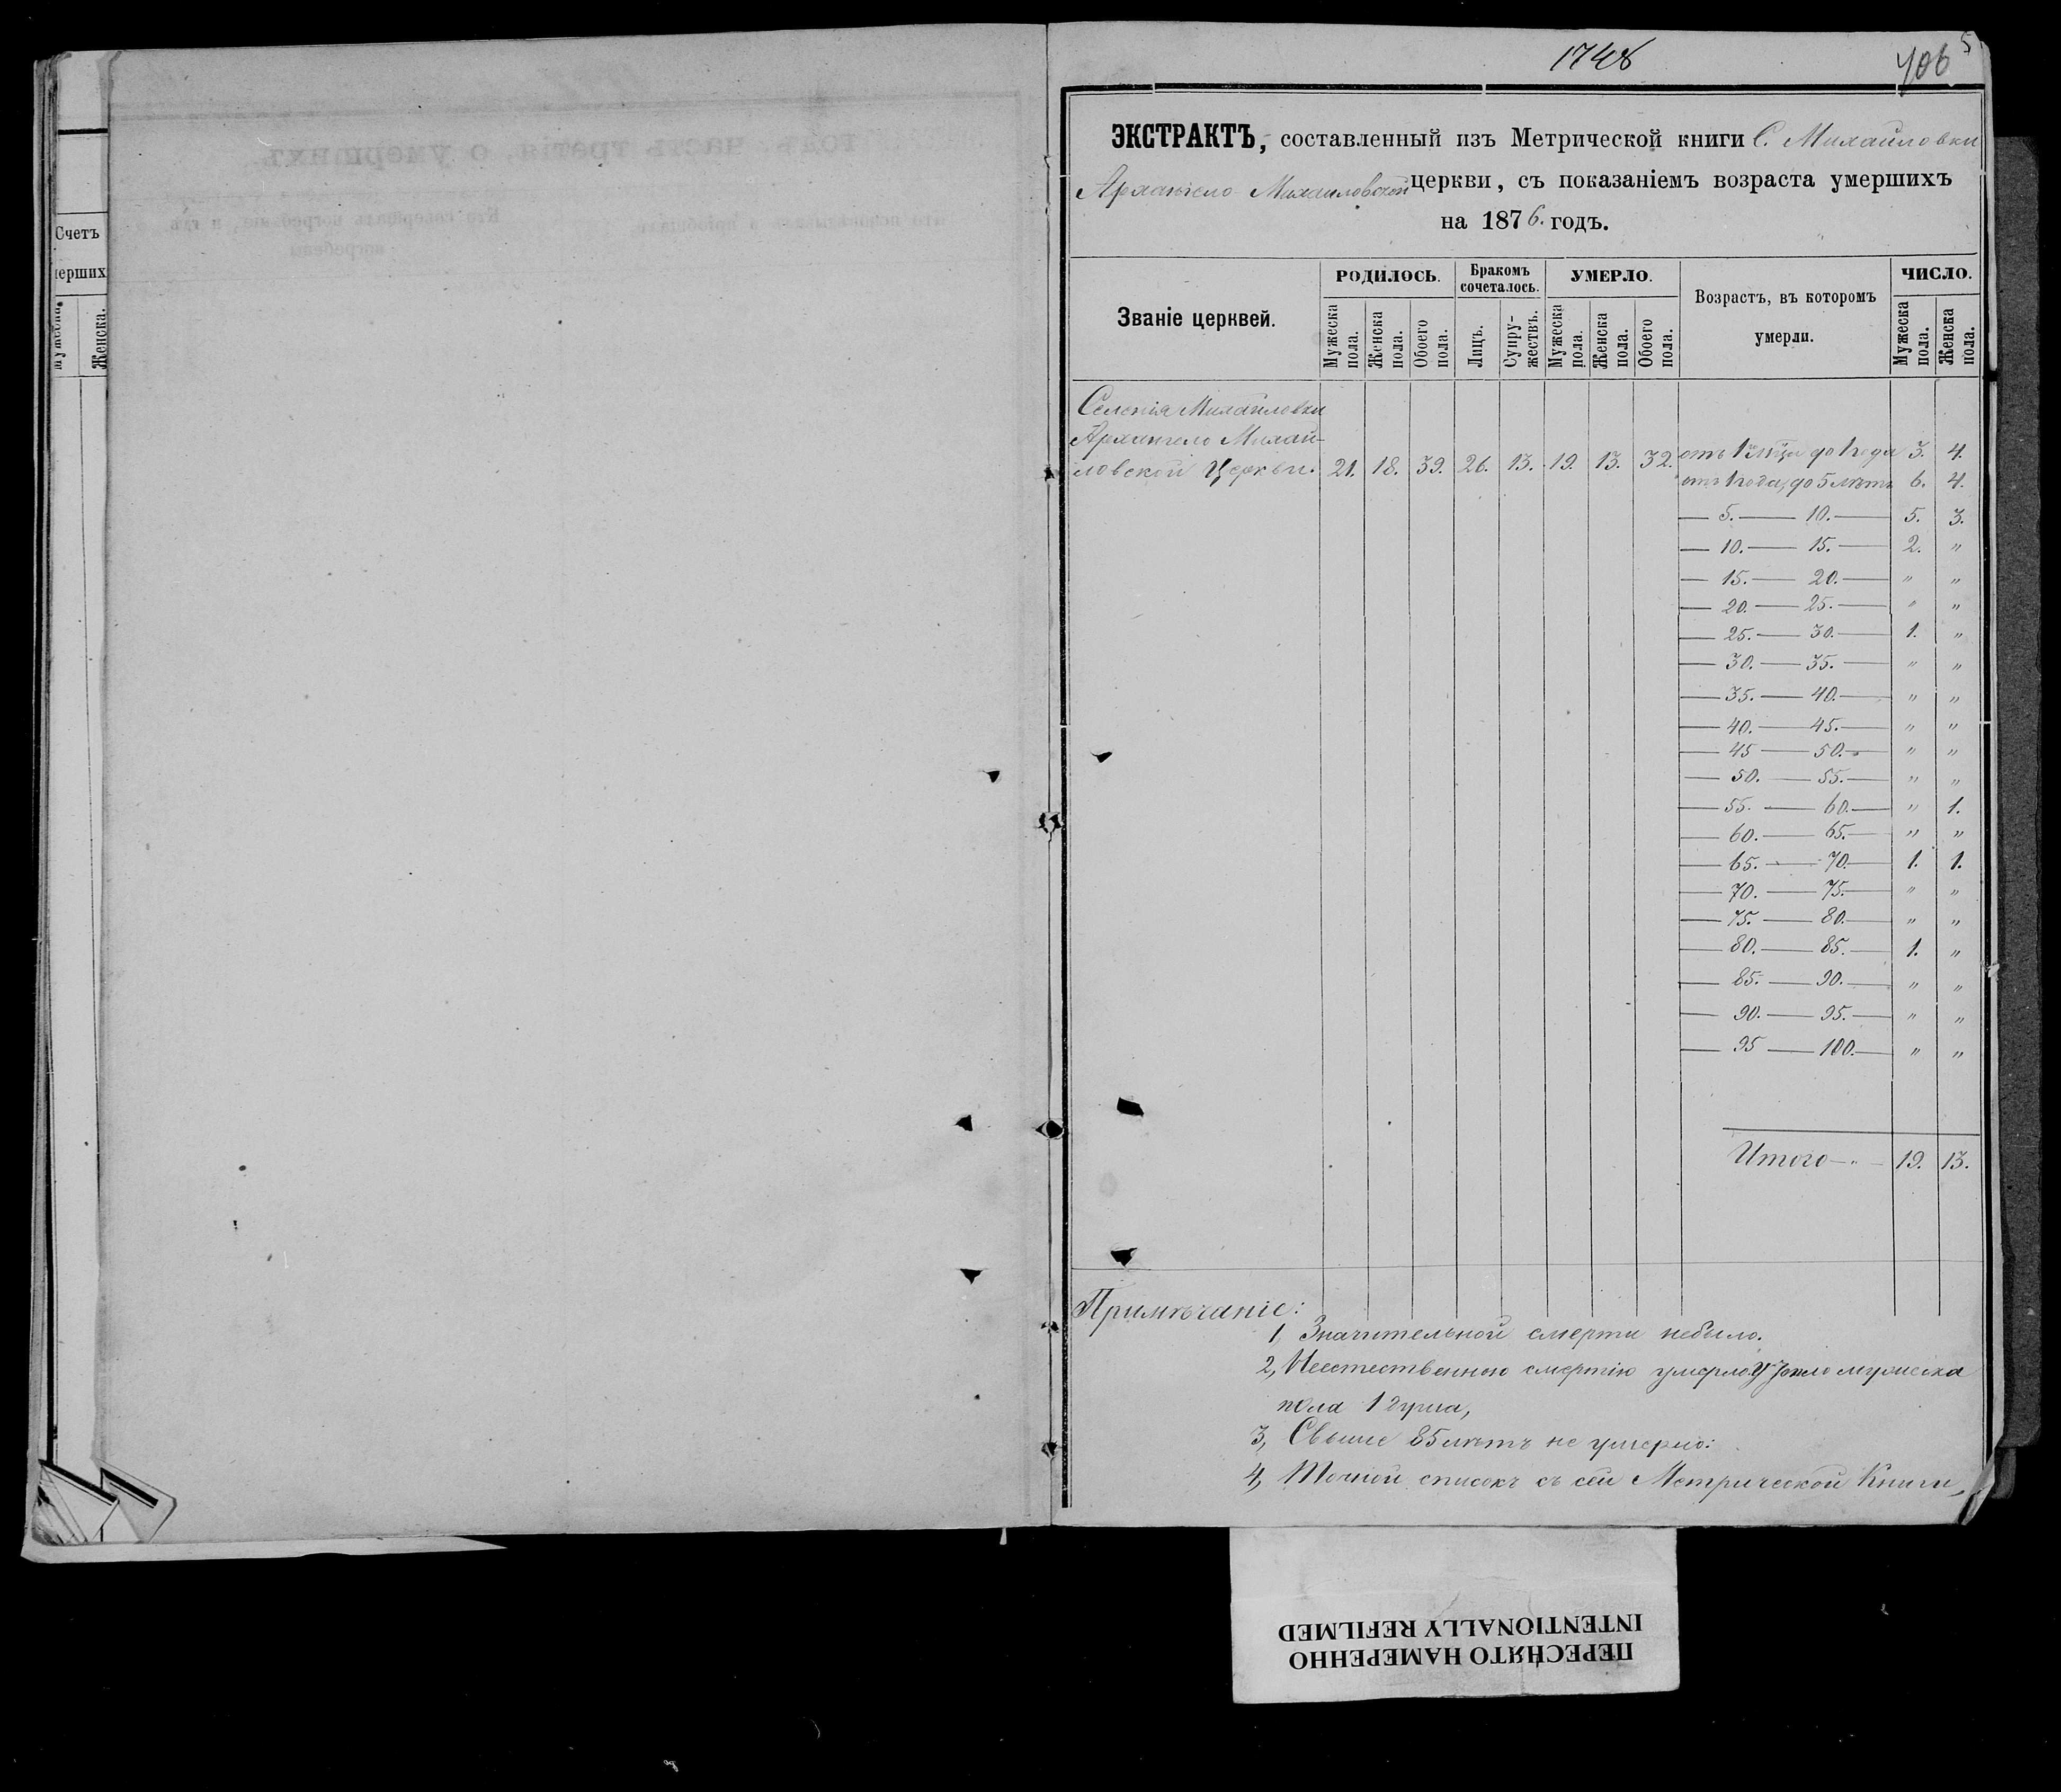 Счетъ
Женска.
1748
406 5
ЭКСТРАКТЪ, составленный изъ Метрической книги С. Михайловки
Архангело Михаиловской церкви, съ показаніемъ возраста умершихъ
на 1876. годъ.
Званіе церквей.
РОДИЛОСЬ.
Бракомъ сочеталось.
УМЕРЛО.
Возрастъ, въ которомъ умерли.
ЧИСЛО.
Мужеска пола.
Женска пола.
Обоего пола.
Лицъ.
Супружествъ.
Мужеска пола.
Женска пола.
Обоего пола.
Мужеска пола.
Женска пола.
Селенія Михайловки
Архангело Михай-
ловской Церкви. 21. 18. 39. 26. 13. 19. 13. 32. отъ 1 до 1 года 3. 4.
отъ 1 года, до 5 лѣтъ 6. 4.
— 5. — 10. — 5. 3.
— 10. — 15. — 2. "
— 15. — 20. — " "
— 20. — 25. — " "
— 25. — 30. — 1. "
— 30. — 35. — " "
— 35. — 40. — " "
— 40. — 45. — " "
— 45 — 50. — " "
— 50. — 55. — " "
— 55. — 60. — " 1.
— 60. — 65. — " "
— 65. — 70. — 1. 1.
— 70. — 75. — " "
— 75. — 80. — " "
— 80. — 85. — 1. "
— 85. — 90. — " "
— 90. — 95. — " "
— 95 — 100. — " "
Итого — " — 19. 13.
Примѣчаніе:
1, Значительной смерти небыло.
2, Неестественною смертію умерло мужеска
пола 1 душа,
3, Свыше 85 лѣтъ не умерло:
4, Точной списокъ съ сей Метрической Книги,
ПЕРЕСНЯТО НАМЕРЕННО
INTENTIONALLY REFILMED